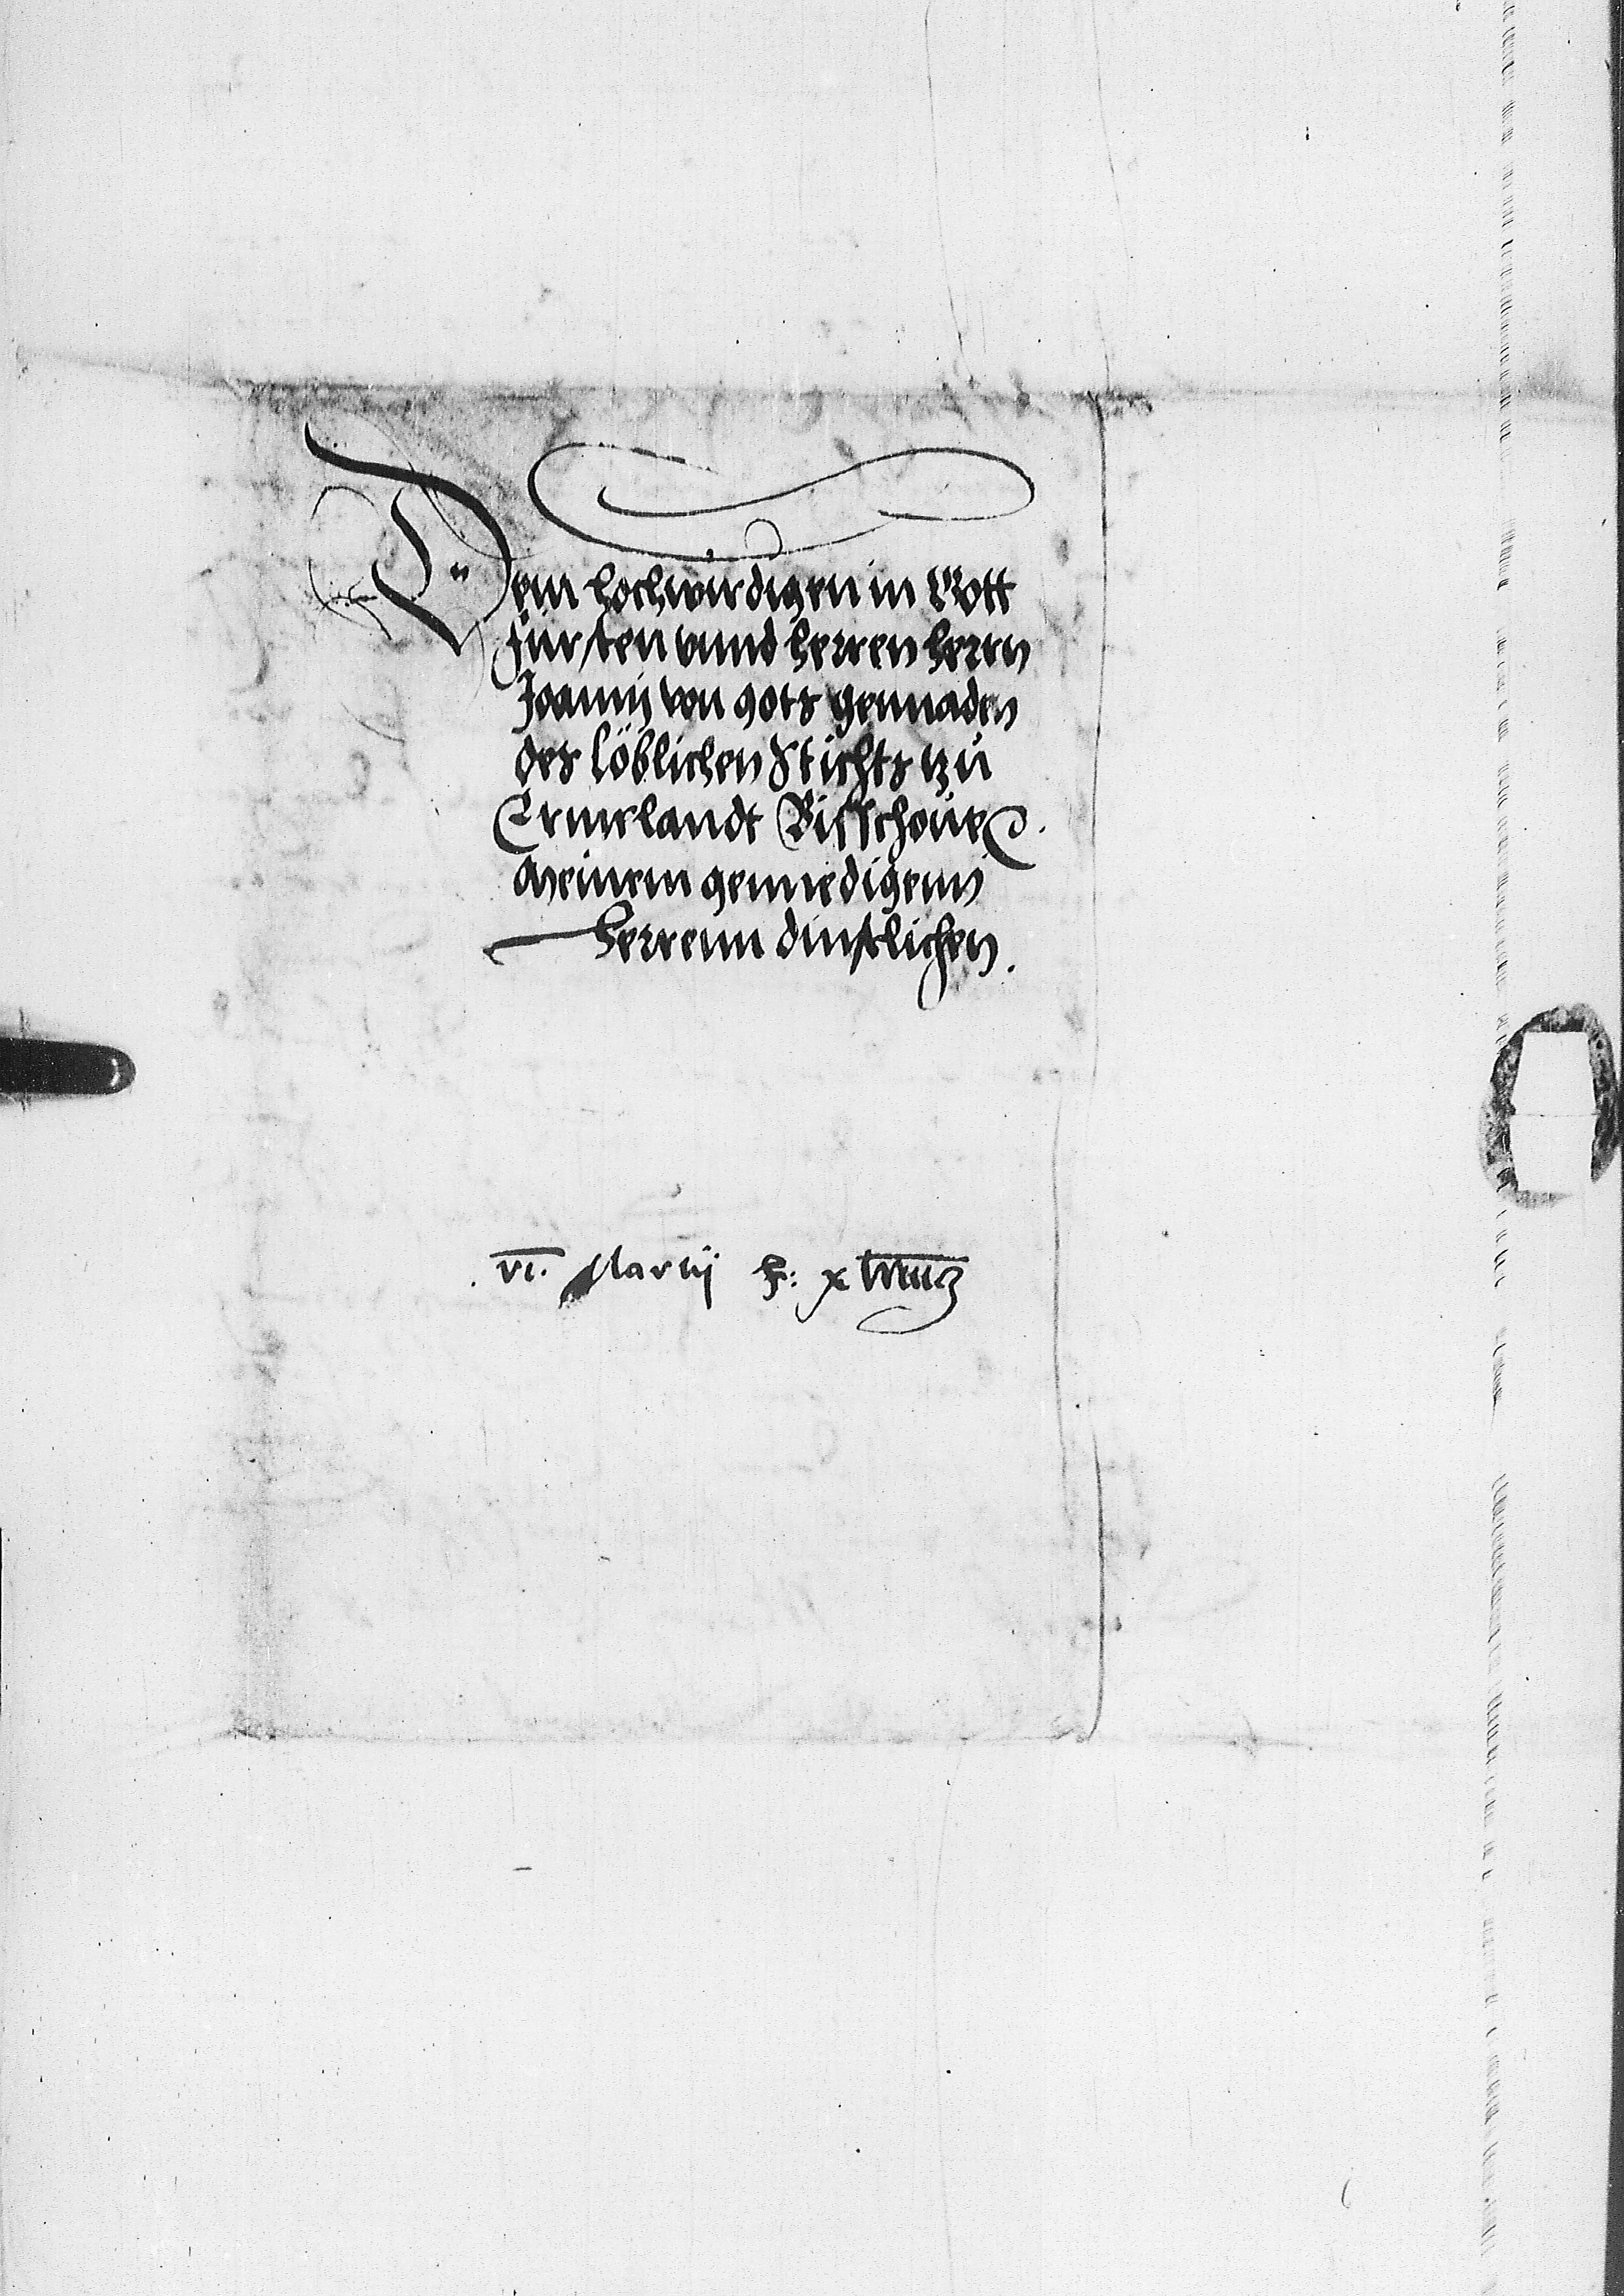 Dem hochwirdigen in Gott
Fürsten vnnd herren herrn
Joannij von gots gennaden
des löblichen Stichts tzu
Ermelandt Bisschoue
Meinem gennedigenn
herrenn dinstlichen.
vi. Martij